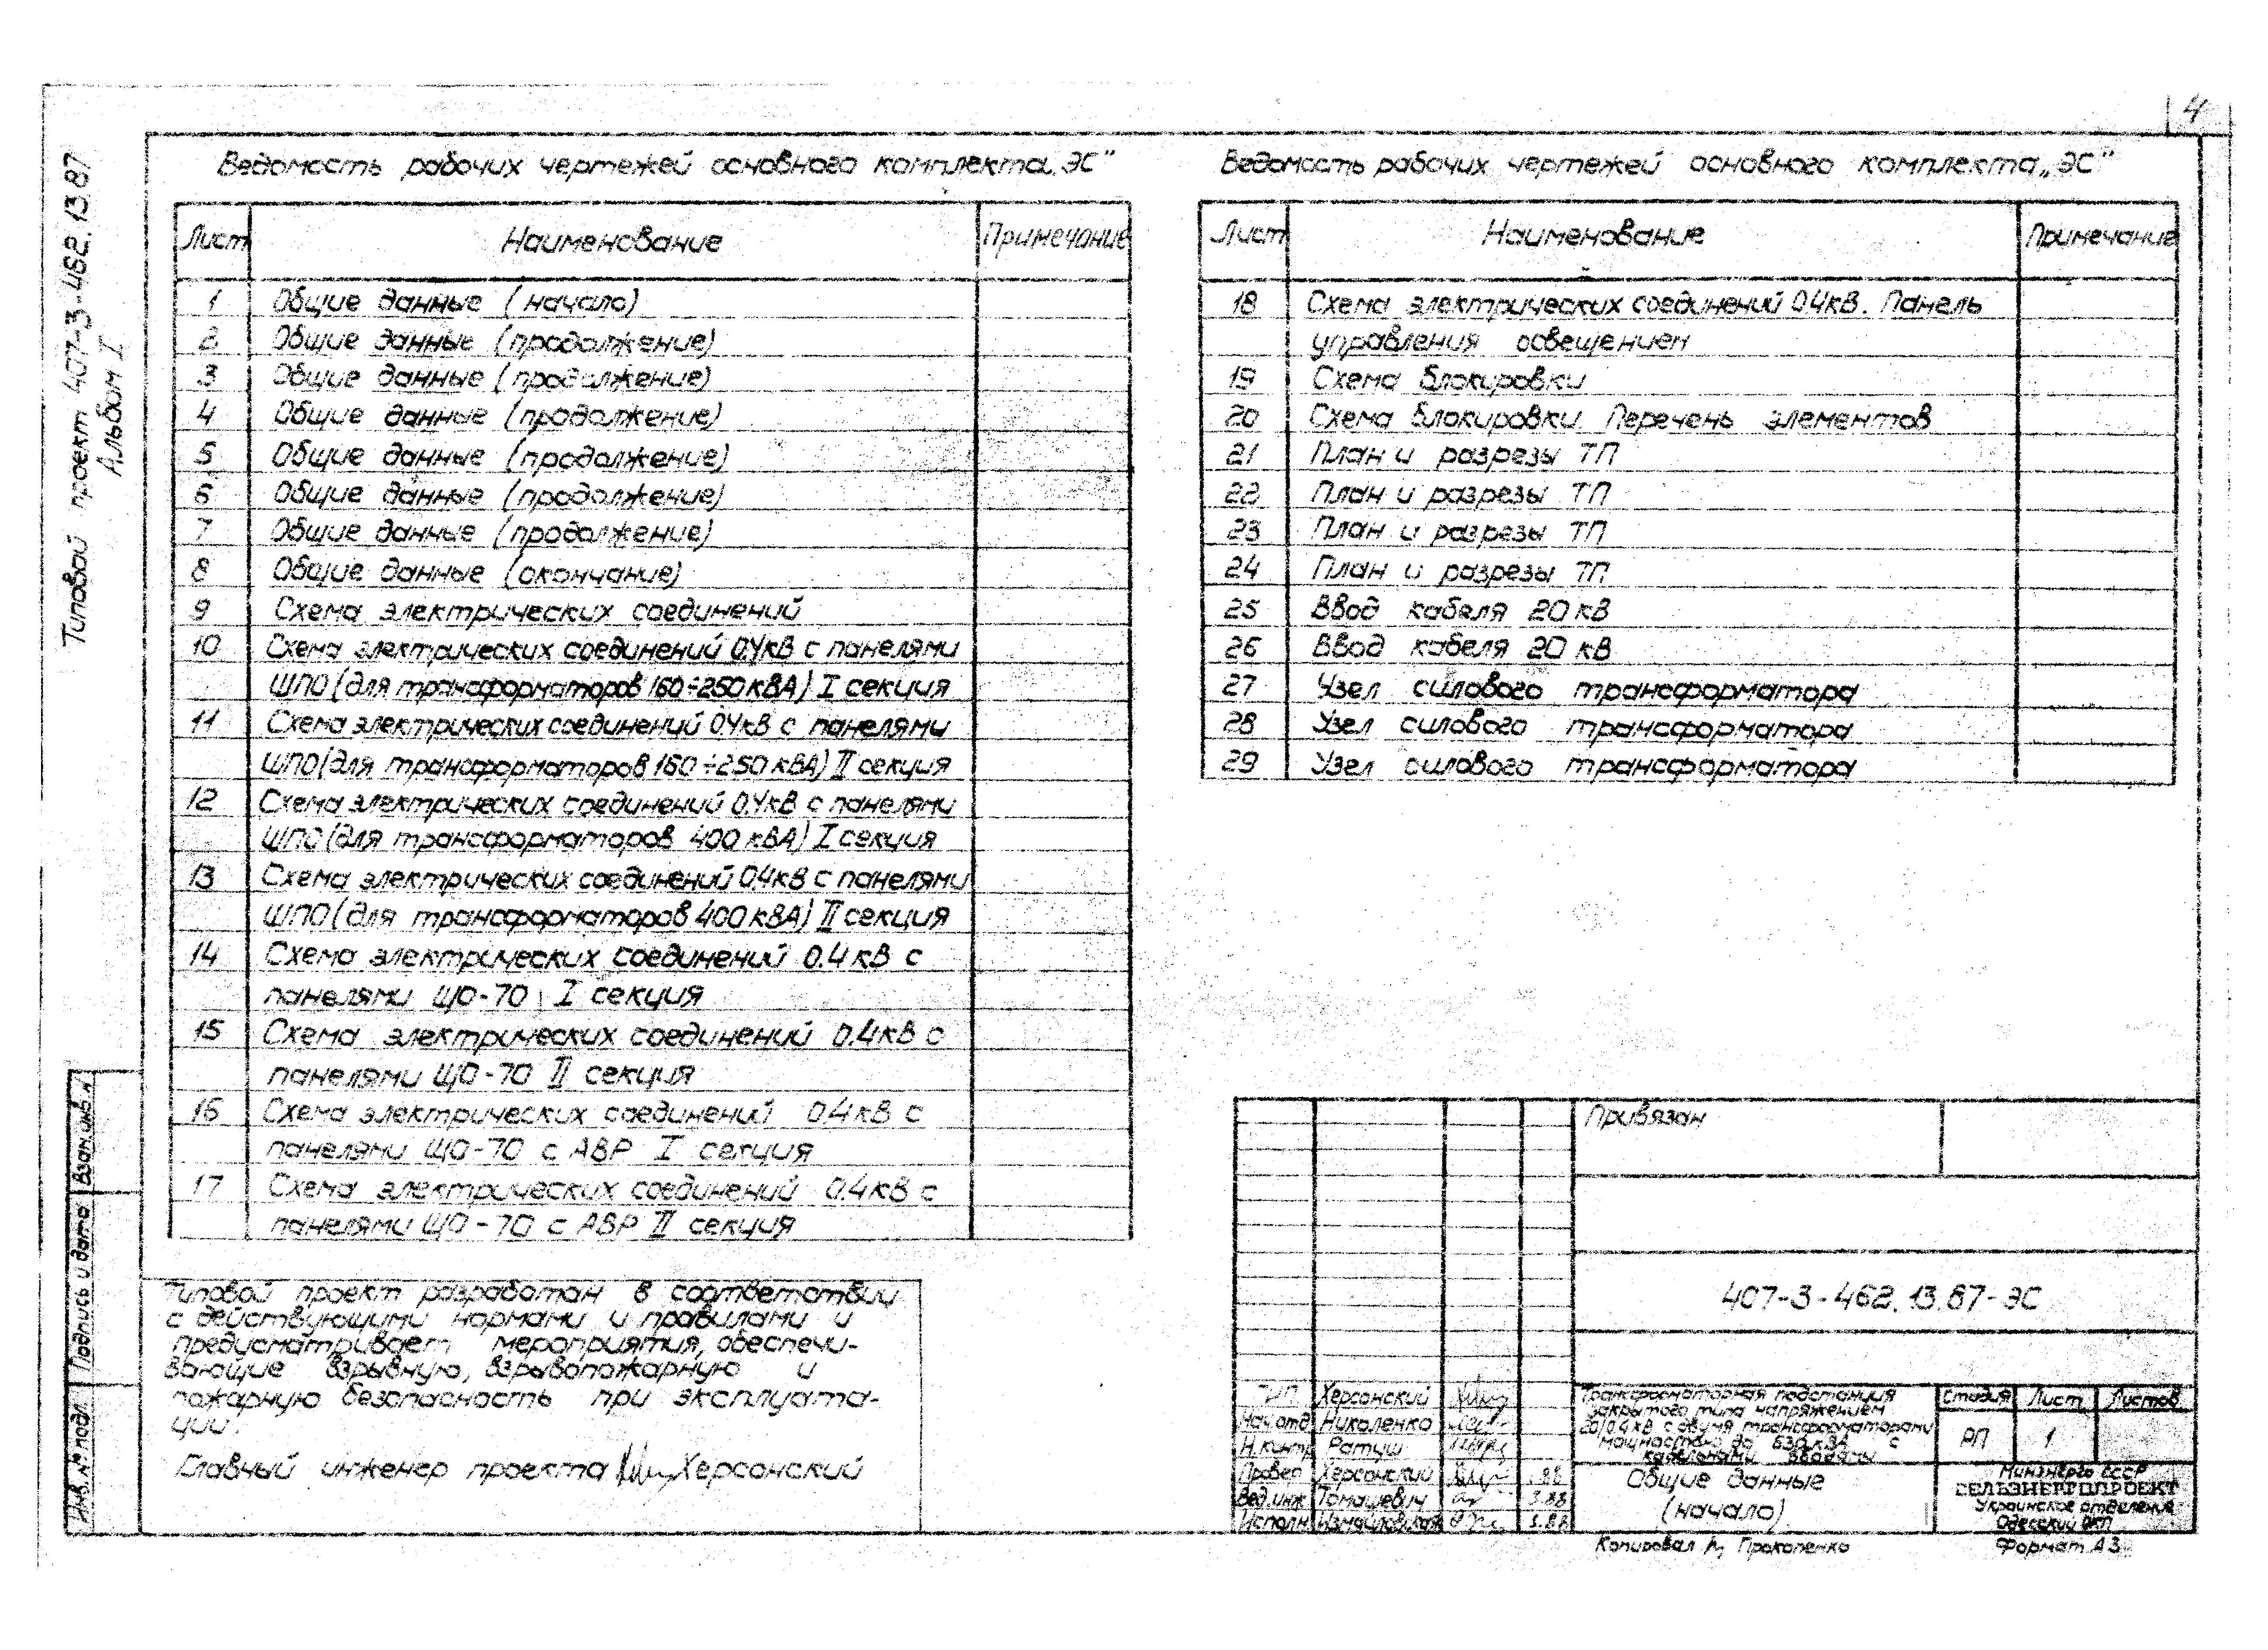 4
Типовой проект 407-3-462.13.87
Альбом I
Ведомость рабочих чертежей основного комплекта „ЭС"
Лист Наименование Примечание
1 Общие данные (начало)
2 Общие данные (продолжение)
3 Общие данные (продолжение)
4 Общие данные (продолжение)
5 Общие данные (продолжение)
6 Общие данные (продолжение)
7 Общие данные (продолжение)
8 Общие данные (окончание)
9 Схема электрических соединений
10 Схема электрических соединений 0.4кВ с панелями
ШПО (для трансформаторов 160÷250 кВА) I секция
11 Схема электрических соединений 0.4кВ с панелями
ШПО (для трансформаторов 160÷250 кВА) II секция
12 Схема электрических соединений 0.4кВ с панелями
ШПО (для трансформаторов 400 кВА) I секция
13 Схема электрических соединений 0.4кВ с панелями
ШПО (для трансформаторов 400 кВА) II секция
14 Схема электрических соединений 0.4кВ с
панелями ЩО-70 I секция
15 Схема электрических соединений 0.4кВ с
панелями ЩО-70 II секция
16 Схема электрических соединений 0.4кВ с
панелями ЩО-70 с АВР I секция
17 Схема электрических соединений 0.4кВ с
панелями ЩО-70 с АВР II секция
Ведомость рабочих чертежей основного комплекта „ЭС"
Лист Наименование Примечание
18 Схема электрических соединений 0.4кВ. Панель
управления освещением
19 Схема блокировки
20 Схема блокировки. Перечень элементов
21 План и разрезы ТП
22 План и разрезы ТП
23 План и разрезы ТП
24 План и разрезы ТП
25 Ввод кабеля 20 кВ
26 Ввод кабеля 20 кВ
27 Узел силового трансформатора
28 Узел силового трансформатора
29 Узел силового трансформатора
Типовой проект разработан в соответствии
с действующими нормами и правилами и
предусматривает мероприятия, обеспечи-
вающие взрывную, взрывопожарную и
пожарную безопасность при эксплуата-
ции.
Главный инженер проекта Херсонский
Взам. инв. №
Подпись и дата
Инв. № подл.
Привязан
407-3-462.13.87-ЭС
ГИП Херсонский
Нач. отд Николенко
Н. контр Ратуш
Провер Херсонский .88
Вед. инж Томашевич 3.88
Исполн Измайловская 3.88
Трансформаторная подстанция
закрытого типа напряжением
20/0.4 кВ с двумя трансформаторами
мощностью до 630 кВА с
кабельными вводами
Стадия Лист Листов
РП 1
Общие данные
(начало)
Минэнерго СССР
СЕЛЬЭНЕРГОПРОЕКТ
Украинское отделение
Одесский ОКП
Копировал Прокопенко
Формат А3